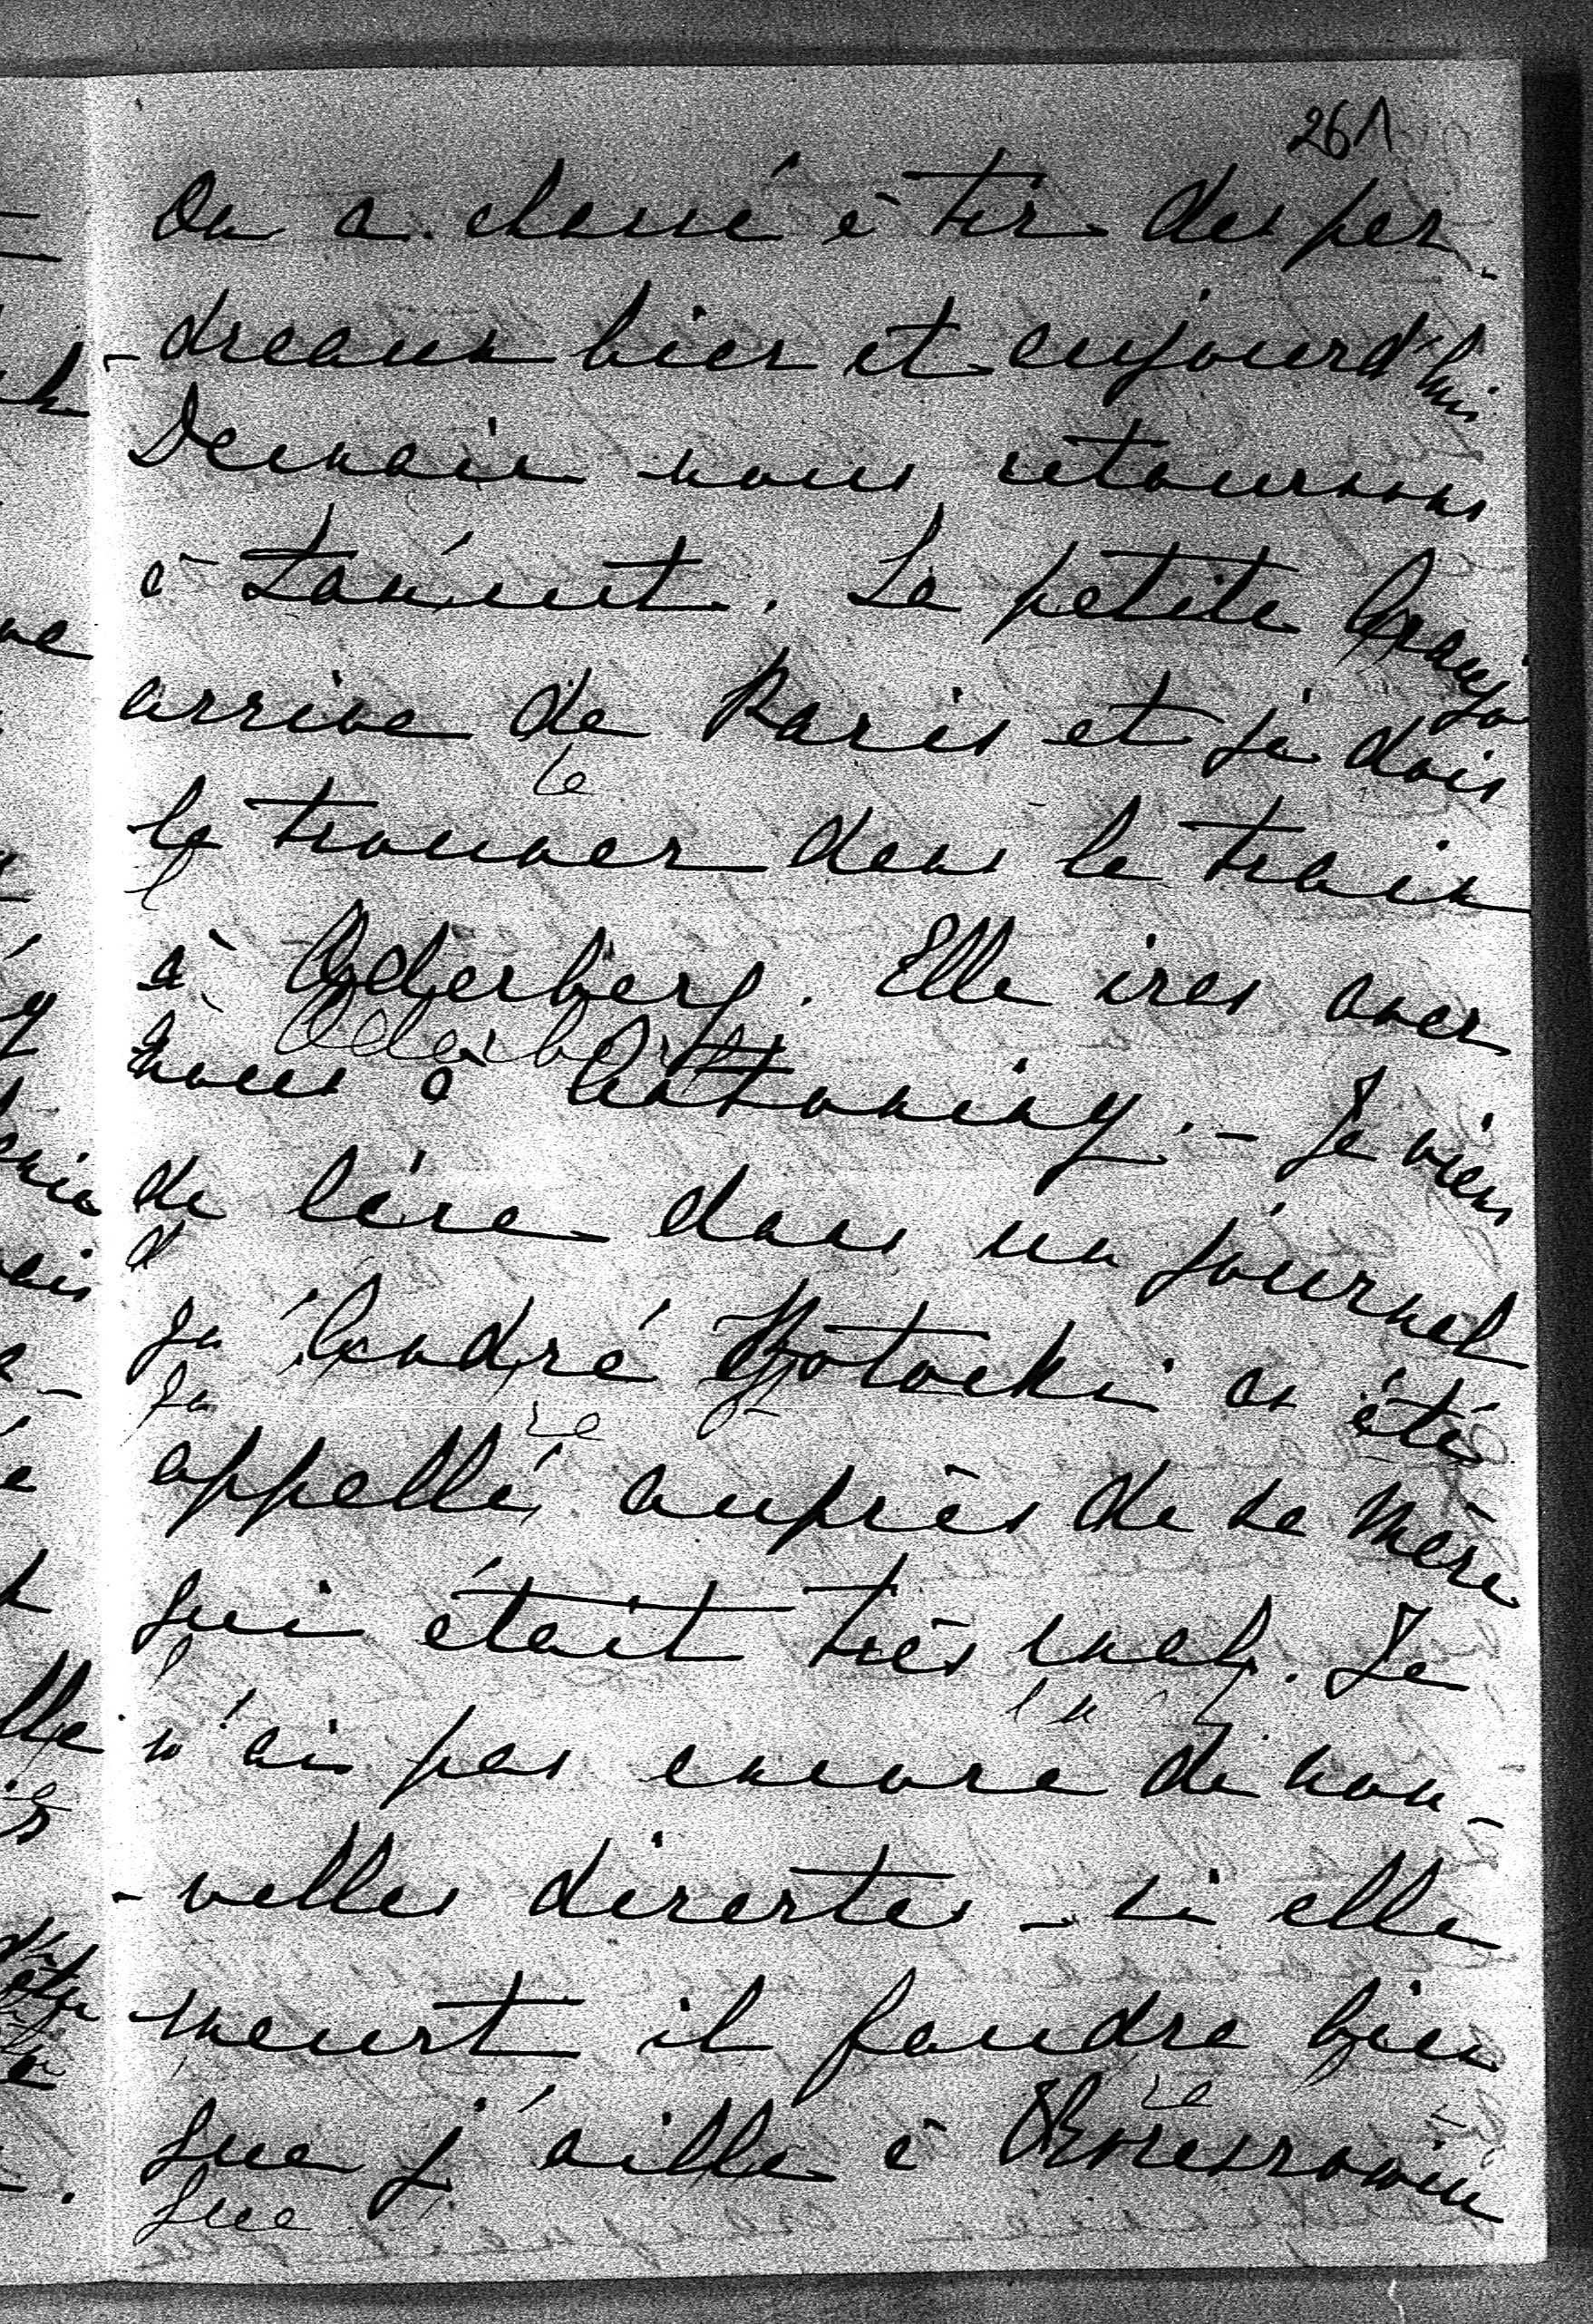 261
On a chassé à tir des per-
-dreaux hier et aujourd'hui
Demain nous retournons
à Łańcut. La petite
arrive de Paris et je dois
la trouver dans le train
à Oderberg. Elle ira avec
Oderberg
nous à Antoniny. – Je viens
de lire dans un journal
qu'André Potocki a été
appellé auprès de sa Mère
qui était très mal. Je
n'ai pas encore de nou-
-velles directes – si elle
meurt il faudra bien
que j'aille à
que